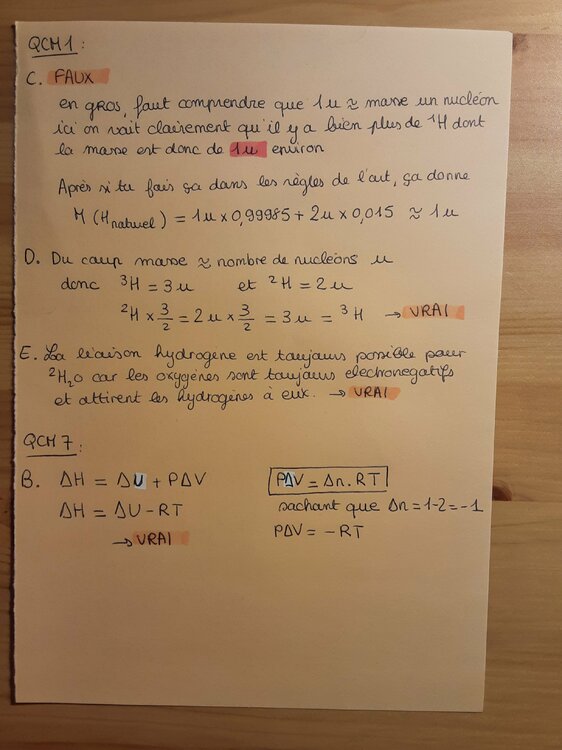 QCM1 :
C. FAUX
en gros, faut comprendre que 1u ≈ masse un nucléon
ici on voit clairement qu'il y a bien plus de ¹H dont
la masse est donc de 1u environ
Après si tu fais ça dans les règles de l'art, ça donne
M (H naturel) = 1u × 0,99985 + 2u × 0,015 ≈ 1u
D. Du coup masse ≈ nombre de nucléons u
donc ³H = 3u et ²H = 2u
²H × 3/2 = 2u × 3/2 = 3u = ³H → VRAI
E. La liaison hydrogène est toujours possible pour
²H₂O car les oxygènes sont toujours electronegatifs
et attirent les hydrogènes à eux. → VRAI
QCM 7 :
B. ΔH = ΔU + PΔV
ΔH = ΔU - RT
→ VRAI
PΔV = Δn. RT
sachant que Δn = 1-2 = -1
PΔV = - RT